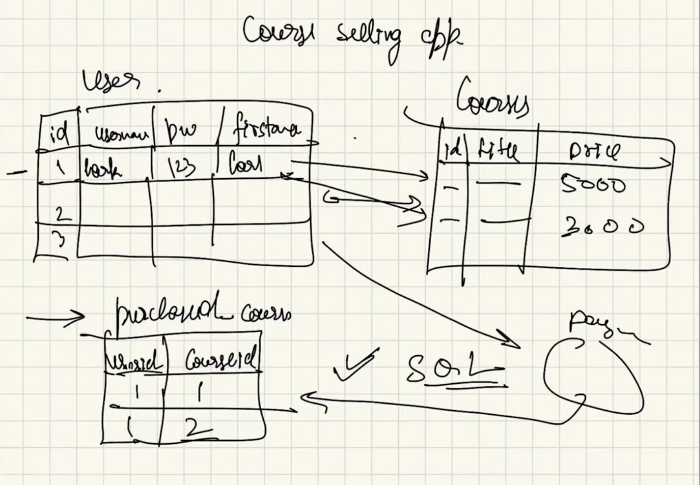 Course selling app
User.
id usernam pw firstna
1 123
2
3
Courses
id title price
5000
3000
purchased courses
userid courseid
1 1
1 2
SQL